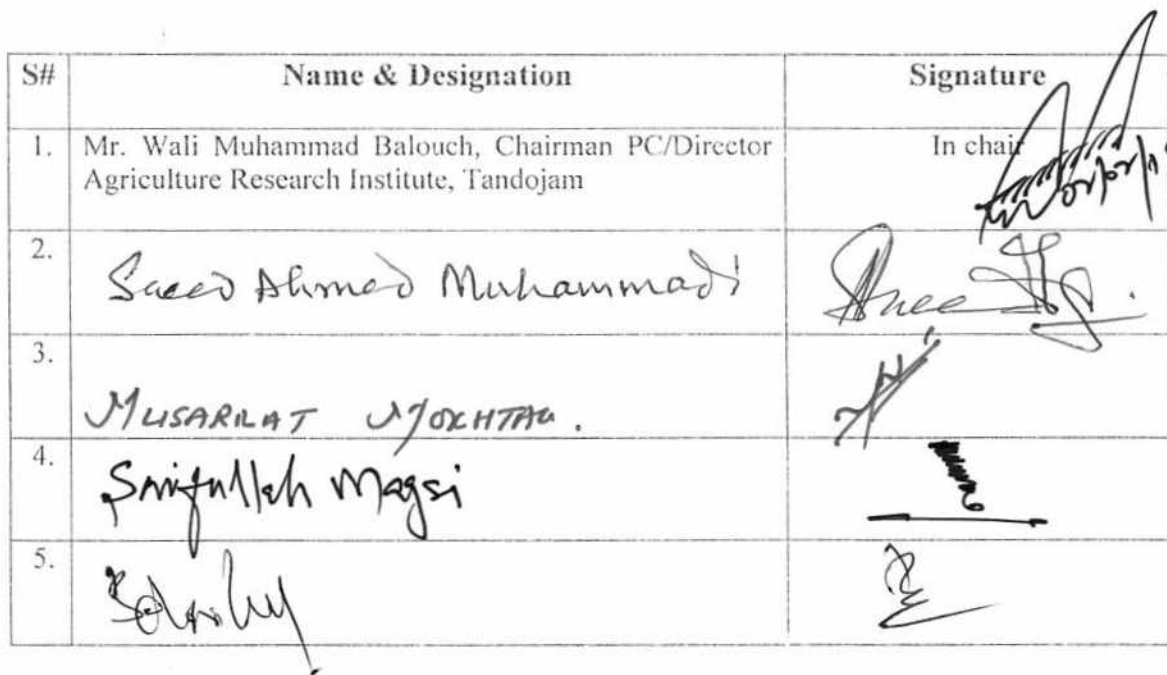 S# Name & Designation Signature
1. Mr. Wali Muhammad Balouch, Chairman PC/Director In chair
Agriculture Research Institute, Tandojam
2. Saeed Ahmed Muhammadi
3. MUSARRAT MOKHTAR.
4. Saifullah Magsi
5.